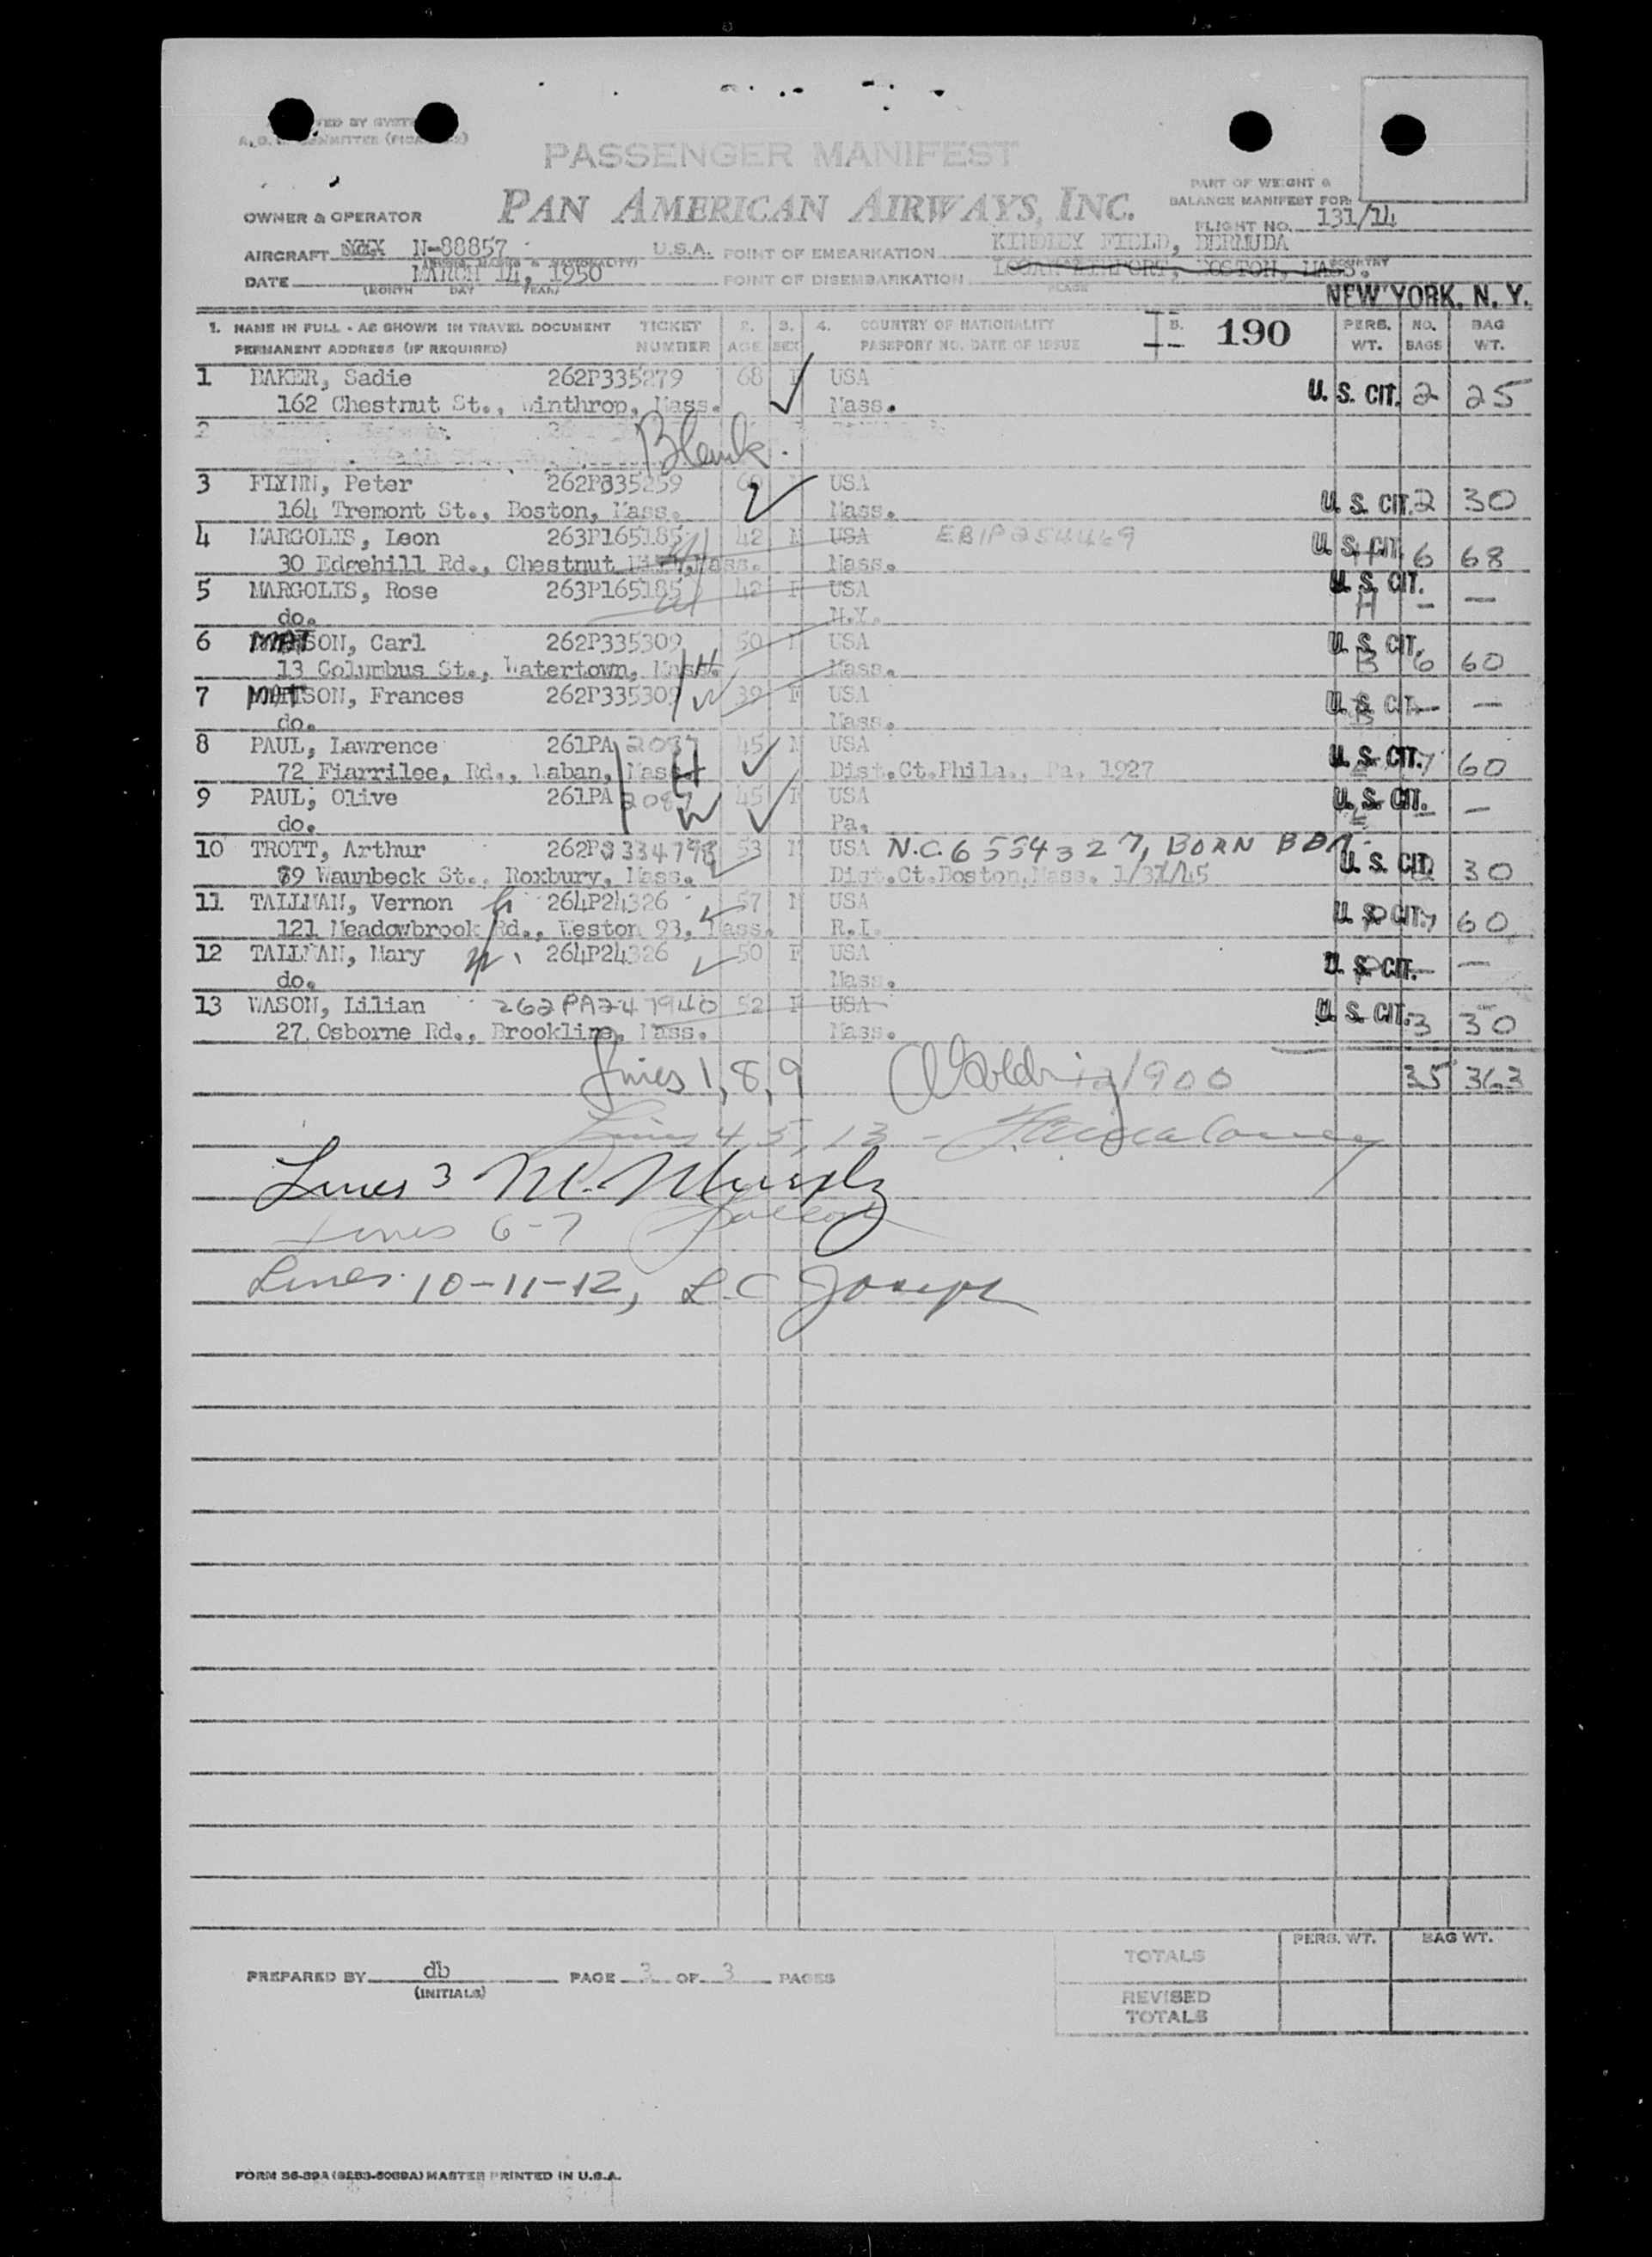 PASSENGER MANIFEST
PAN AMERICAN AIRWAYS, INC.
PART OF WEIGHT &
BALANCE MANIFEST FOR:
OWNER & OPERATOR
FLIGHT NO. 131/14
AIRCRAFT N-88857 U.S.A. POINT OF EMBARKATION KINDLEY FIELD, BERMUDA
DATE MARCH 14, 1950 POINT OF DISEMBARKATION LOGAN AIRPORT, BOSTON, MASS.
(MONTH DAY YEAR) PLACE COUNTRY
NEW YORK, N. Y.
1. NAME IN FULL - AS SHOWN IN TRAVEL DOCUMENT TICKET 2. 3. 4. COUNTRY OF NATIONALITY 5. 190 PERS. NO. BAG
PERMANENT ADDRESS (IF REQUIRED) NUMBER AGE SEX PASSPORT NO. DATE OF ISSUE WT. BAGS WT.
1 BAKER, Sadie 262P335279 68 F USA
162 Chestnut St., Winthrop, Mass. Mass. U. S. CIT. 2 25
2 Blank.
3 FLYNN, Peter 262P335259 60 M USA
164 Tremont St., Boston, Mass. Mass. U. S. CIT. 2 30
4 MARGOLIS, Leon 263P165185 42 M USA EBIP254469
30 Edgehill Rd., Chestnut Hill, Mass. Mass. U. S. CIT. H 6 68
5 MARGOLIS, Rose 263P165185 42 F USA U. S. CIT.
do. N.Y. H — —
6 MATSON, Carl 262P335309 50 M USA U. S. CIT.
13 Columbus St., Watertown, Mass. H Mass. B 6 60
7 MATSON, Frances 262P335309 W 39 F USA U. S. CIT. — —
do. Mass. B
8 PAUL, Lawrence 261PA 2087 45 M USA
72 Fiarrilee, Rd., Waban, Mass. H Dist.Ct.Phila., Pa. 1927 U. S. CIT. 7 60
9 PAUL, Olive 261PA 2087 45 F USA U. S. CIT. — —
do. W Pa. E
10 TROTT, Arthur 262P3334798 53 M USA N.C. 6554327, BORN BDA.
79 Waumbeck St., Roxbury, Mass. Dist.Ct.Boston,Mass. 1/31/45 U. S. CIT. 2 30
11 TALLMAN, Vernon h 264P24326 57 M USA
121 Meadowbrook Rd., Weston 93, Mass. R.I. U. S. CIT. P 7 60
12 TALLMAN, Mary w 264P24326 50 F USA
do. Mass. U. S. CIT. P — —
13 WASON, Lilian 262PA247940 52 F USA
27 Osborne Rd., Brookline, Mass. Mass. U. S. CIT. 3 30
Lines 1, 8, 9 1900 35 363
Lines 4, 5, 13 -
Lines 3 M. Murphy
Lines 6-7
Lines 10-11-12, L.C Joseph
TOTALS PERS. WT. BAG WT.
PREPARED BY db PAGE 3 OF 3 PAGES
(INITIALS)
REVISED
TOTALS
MASTER PRINTED IN U.S.A.